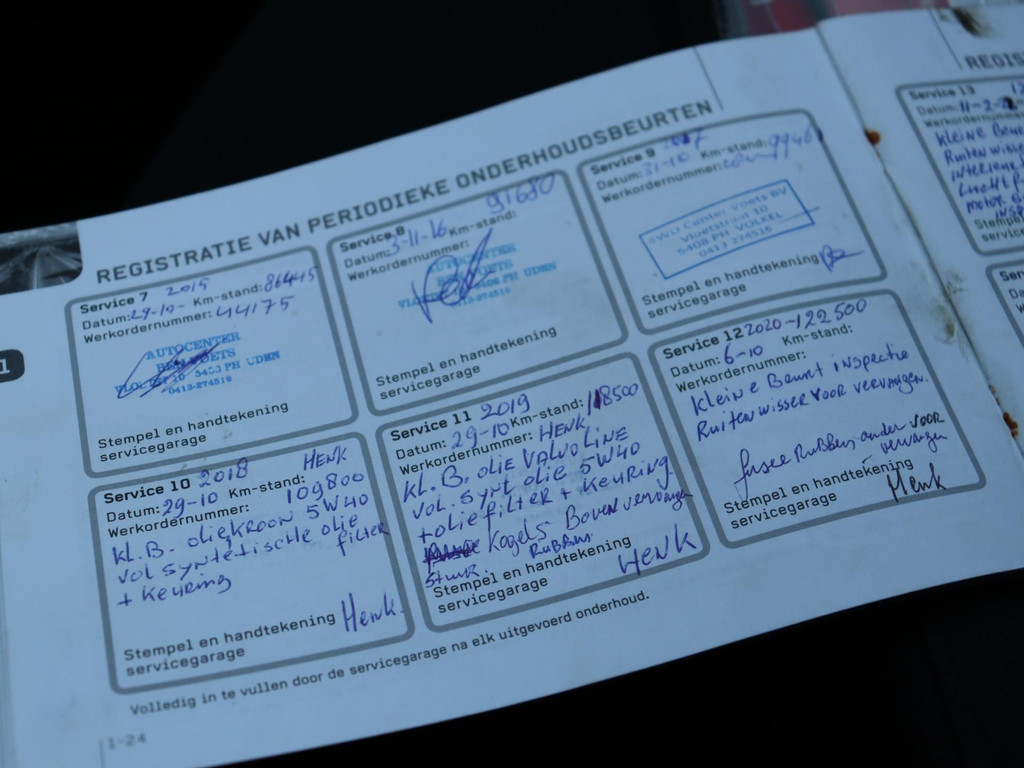 REGISTRATIE VAN PERIODIEKE ONDERHOUDSBEURTEN
Service 7 2015
Datum: 29-10- Km-stand: 86445
Werkordernummer: 44175
AUTOCENTER
5403 PH UDEN
0413-274516
Stempel en handtekening
servicegarage
Service 8 91680
Datum: 3-11-16 Km-stand:
Werkordernummer:
AUTOCENTER
PH UDEN
Stempel en handtekening
servicegarage
Service 9 2017
Datum: 31-10 Km-stand:
Werkordernummer:
Center Voets BV
10
5408 PH VOLKEL
0413 274516
Stempel en handtekening
servicegarage
Service 10 2018 HENK
Datum: 29-10 Km-stand:
Werkordernummer: 109800
Kl. B. oliekroon 5W40
vol syntetische olie
filter
+ Keuring
Stempel en handtekening Henk.
servicegarage
Service 11 2019
Datum: 29-10 Km-stand: 118500
Werkordernummer: HENK
Kl. B. olie Valvoline
vol. synt olie 5W40
+ oliefilter + Keuring
Kogels Boven vervangen
Stuur Rubbers
Stempel en handtekening
servicegarage HENK
Service 12 2020 - 122500
Datum: 6-10 Km-stand:
Werkordernummer:
Kleine Beurt inspectie
Ruitenwisser voor vervangen.
fusee Rubbers onder voor
vervangen
Stempel en handtekening
servicegarage Henk
Volledig in te vullen door de servicegarage na elk uitgevoerd onderhoud.
1-24
1
Service 13
Datum: 11-2-
Werkordernummer
Kleine Beur
Ruitenwis
interieur
Lucht f
motor
Stempe
service